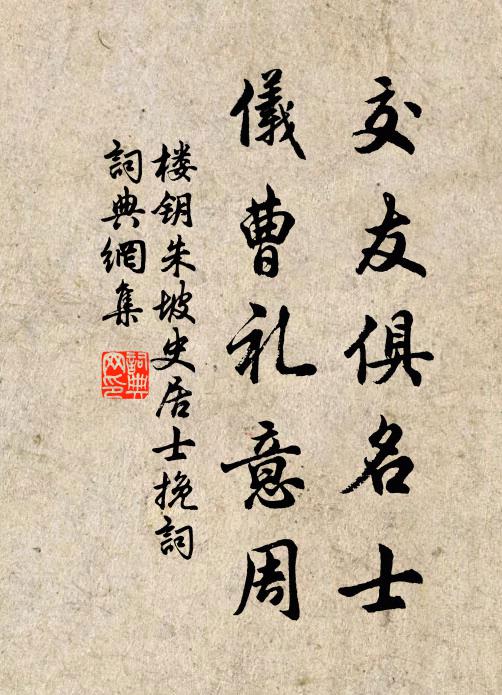 交友俱名士
儀曹礼意周
楼钥朱坡史居士挽詞
詞典網集
詞典網印